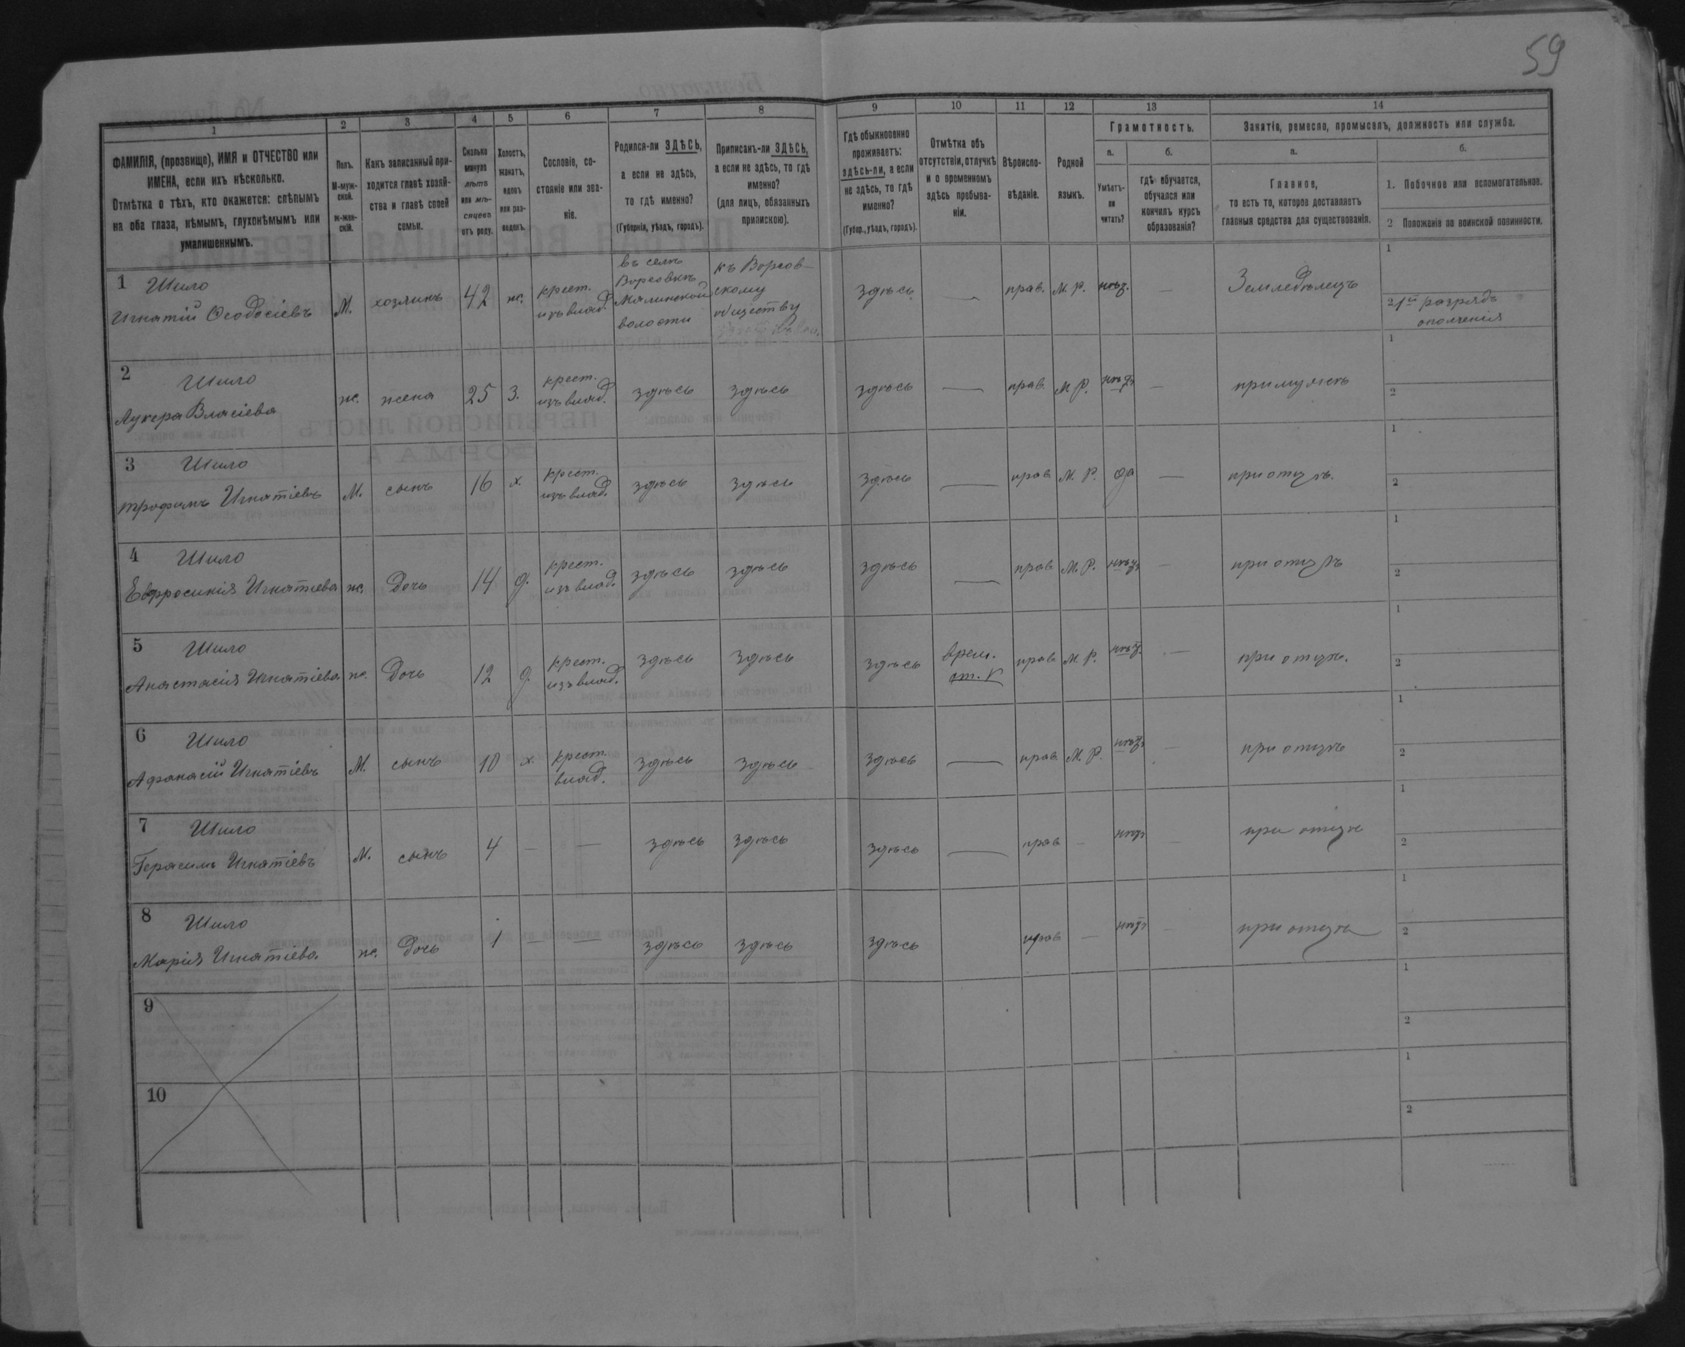 59
1
2
3
4
5
6
7
8
9
10
11
12
13
14
ФАМИЛІЯ, (прозвище), ИМЯ и ОТЧЕСТВО или
ИМЕНА, если ихъ нѣсколько.
Отмѣтка о тѣхъ, кто окажется: слѣпымъ
на оба глаза, нѣмымъ, глухонѣмымъ или
умалишеннымъ.
Полъ.
М-муж-
ской.
ж-жен-
скій.
Какъ записанный при-
ходится главѣ хозяй-
ства и главѣ своей
семьи.
Сколько
минуло
лѣтъ
или мѣ-
сяцевъ
отъ роду.
Холостъ,
женатъ,
вдовъ
или раз-
веденъ.
Сословіе, со-
стояніе или зва-
ніе.
Родился-ли ЗДѢСЬ,
а если не здѣсь,
то гдѣ именно?
(Губернія, уѣздъ, городъ).
Приписанъ-ли ЗДѢСЬ,
а если не здѣсь, то гдѣ
именно?
(для лицъ, обязанныхъ
припискою).
Гдѣ обыкновенно
проживаетъ:
здѣсь-ли, а если
не здѣсь, то гдѣ
именно?
(Губер., уѣздъ, городъ).
Отмѣтка объ
отсутствіи, отлучкѣ
и о временномъ
здѣсь пребыва-
ніи.
Вѣроиспо-
вѣданіе.
Родной
языкъ.
Грамотность.
а.
Умѣетъ-
ли
читать?
б.
гдѣ обучается,
обучался или
кончилъ курсъ
образованія?
Занятіе, ремесло, промыселъ, должность или служба.
а.
Главное,
то есть то, которое доставляетъ
главныя средства для существованія.
б.
1. Побочное или вспомогательное.
2 Положеніе по воинской повинности.
1 Шило
Игнатій Ѳеодосіевъ
М. хозяинъ 42 ж.
крест.
изъ влад.
въ селѣ
Ворсовкѣ
Малинской
волости
къ Ворсов-
скому
обществу
здѣсь — прав. М.Р. нѣт. — Земледѣлецъ
1
2 1го разряда
ополченія
2 Шило
Лукера Власіева
ж. жена 25 З.
крест.
изъ влад.
здѣсь здѣсь здѣсь — прав. М.Р. нѣтъ — при мужѣ
1
2
3 Шило
Трофимъ Игнатіевъ
М. сынъ 16 х.
крест.
изъ влад.
здѣсь здѣсь здѣсь — прав. М.Р. да — при отцѣ.
1
2
4 Шило
Евфросинія Игнатіева
ж. Дочь 14 д.
крест.
изъ влад.
здѣсь здѣсь здѣсь — прав. М.Р. нѣтъ — при отцѣ
1
2
5 Шило
Анастасія Игнатіева
ж. Дочь 12 д.
крест.
изъ влад.
здѣсь здѣсь здѣсь
врем.
от. V
прав. М.Р. нѣт. — при отцѣ.
1
2
6 Шило
Афанасій Игнатіевъ
М. сынъ 10 х.
крест.
влад.
здѣсь здѣсь здѣсь — прав. М.Р. нѣтъ — при отцѣ
1
2
7 Шило
Герасимъ Игнатіевъ
М. сынъ 4 — — здѣсь здѣсь здѣсь — прав — нѣтъ — при отцѣ
1
2
8 Шило
Марія Игнатіева
ж. Дочь 1 — — здѣсь здѣсь здѣсь прав — нѣтъ — при отцѣ
1
2
9
1
2
10
1
2